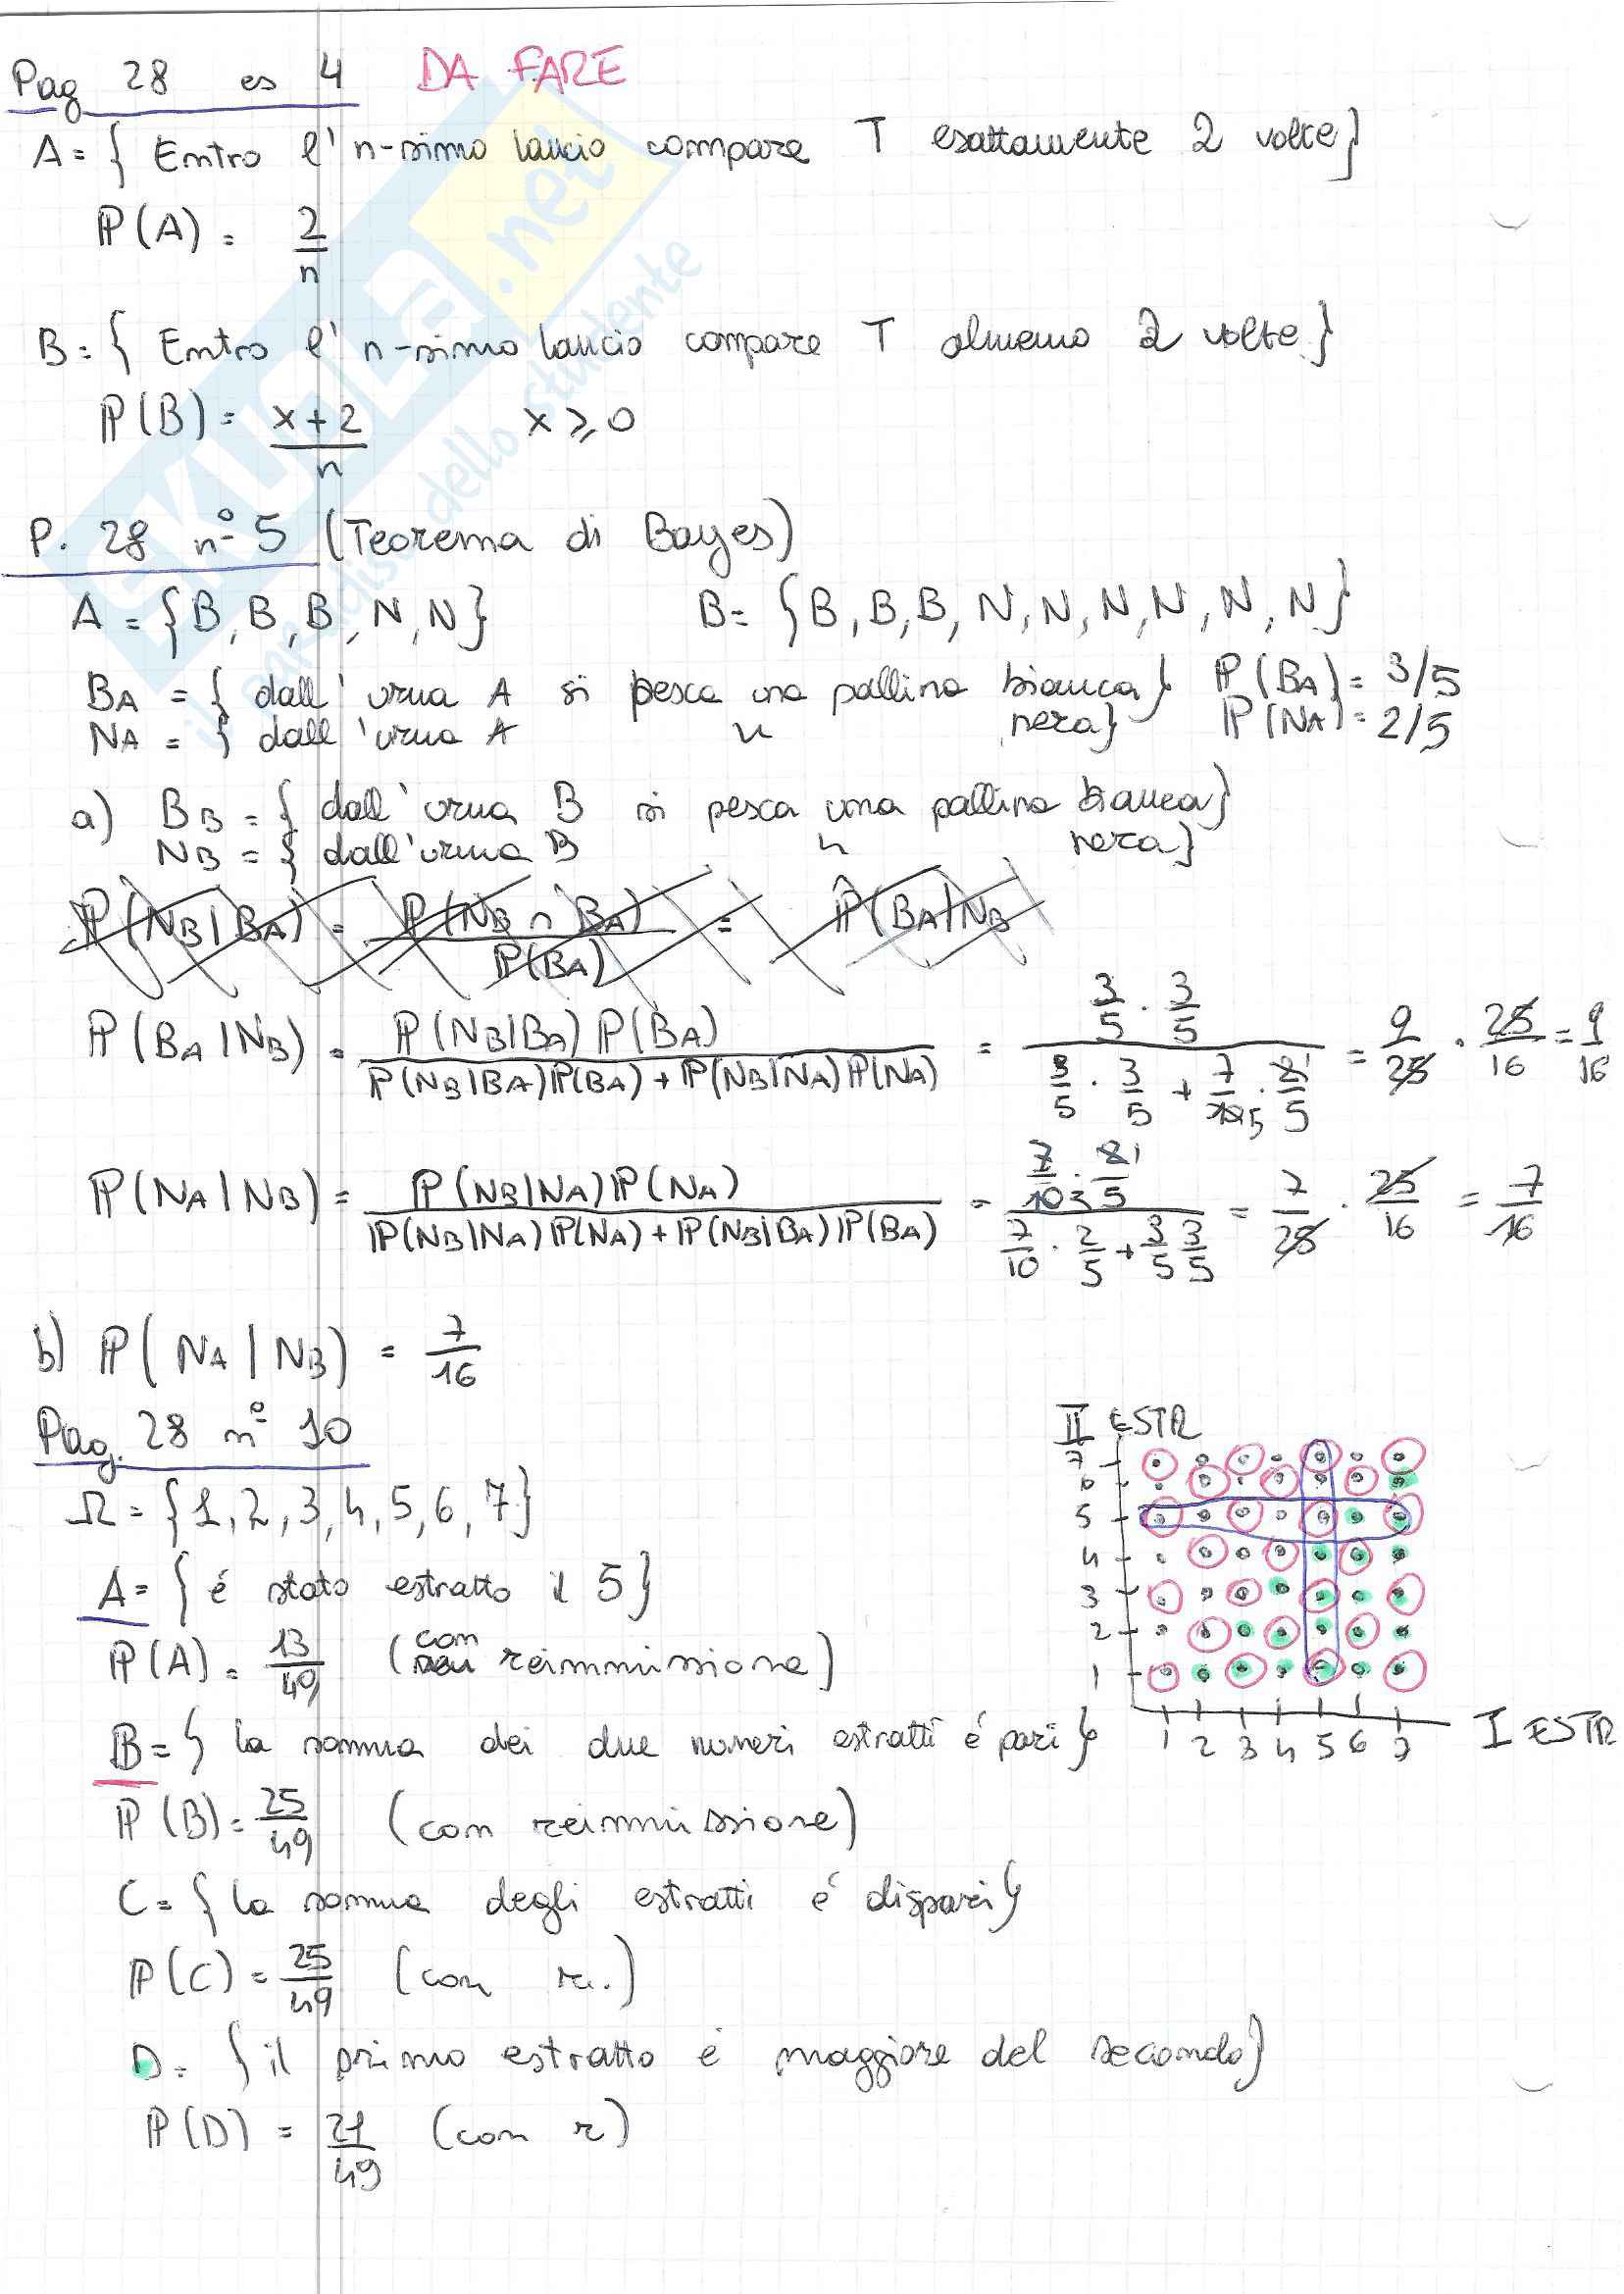 Pag 28 es 4 DA FARE
A = { Entro l' n-simo lancio compare T esattamente 2 volte}
P(A) = 2/n
B = { Entro l' n-simo lancio compare T almeno 2 volte}
P(B) = x+2/n x ⩾ 0
P. 28 n° 5 (Teorema di Bayes)
A = {B, B, B, N, N} B = {B, B, B, N, N, N, N, N, N}
BA = { dall' urna A si pesca una pallina bianca} P(BA) = 3/5
NA = { dall' urna A " nera} P(NA) = 2/5
a) BB = { dall' urna B si pesca una pallina bianca}
NB = { dall' urna B " nera}
P(NB|BA) = P(NB ∩ BA)/P(BA) = P(BA|NB
P(BA|NB) = P(NB|BA) P(BA) / P(NB|BA)P(BA) + P(NB|NA)P(NA) = 3/5 · 3/5 / 3/5 · 3/5 + 7/10 5 · 2 1/5 = 9/25 · 25/16 = 9/16
P(NA|NB) = P(NB|NA)P(NA) / P(NB|NA)P(NA) + P(NB|BA)P(BA) = 7/10 5 · 2 1/5 / 7/10 · 2/5 + 3/5 3/5 = 7/25 · 25/16 = 7/16
b) P(NA|NB) = 7/16
Pag. 28 n° 10
II ESTR
7
6
5
4
3
2
1
1 2 3 4 5 6 7 I ESTR
Ω = {1, 2, 3, 4, 5, 6, 7}
A = { é stato estratto il 5}
P(A) = 13/49 (con reimmissione)
B = { la somma dei due numeri estratti é pari}
P(B) = 25/49 (con reimmissione)
C = { la somma degli estratti é dispari}
P(C) = 25/49 (con re.)
D = { il primo estratto é maggiore del secondo}
P(D) = 21/49 (con r)
SKUOLA.net
il paradiso dello studente